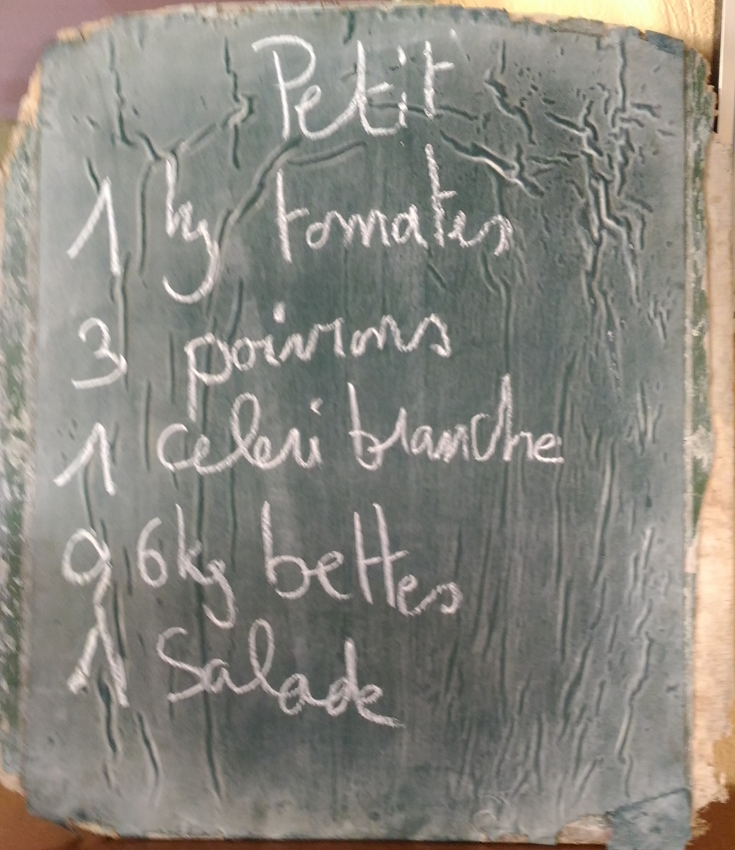 Petit
1 kg tomates
3 poivrons
1 celeri branche
0,6kg bettes
1 Salade